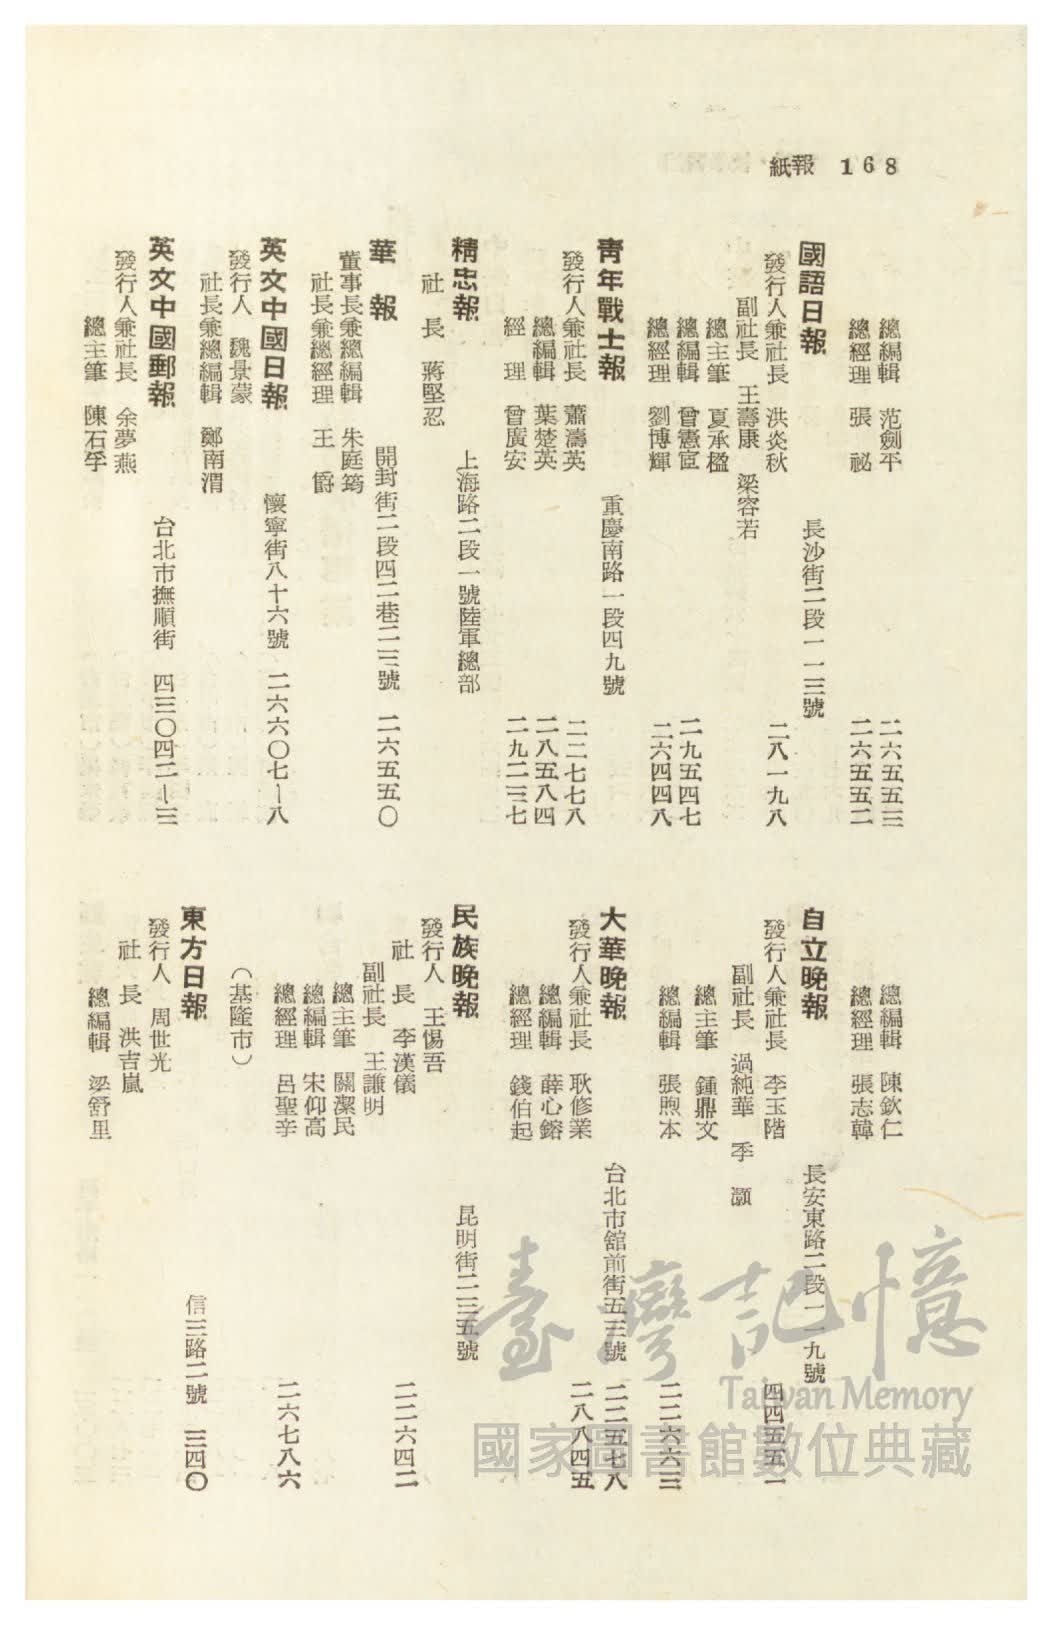 168 報紙
總編輯 范劍平 二六五五三
總經理 張 祕 二六五五二
國語日報 長沙街二段一一三號
發行人兼社長 洪炎秋 二八一九八
副社長 王壽康 梁容若
總主筆 夏承楹
總編輯 曾憲宦 二九五四七
總經理 劉博輝 二六四四八
青年戰士報 重慶南路一段四九號
發行人兼社長 蕭濤英 二二七七八
總編輯 葉楚英 二八五八四
經 理 曾廣安 二九二三七
精忠報 上海路二段一號陸軍總部
社 長 蔣堅忍
華 報 開封街二段四二巷二三號 二六五五〇
董事長兼總編輯 朱庭筠
社長兼總經理 王 爵
英文中國日報 懷寧街八十六號 二六六〇七—八
發行人 魏景蒙
社長兼總編輯 鄭南渭
英文中國郵報 台北市撫順街 四三〇四二—三
發行人兼社長 余夢燕
總主筆 陳石孚
總編輯 陳欽仁
總經理 張志韓
自立晚報 長安東路二段一一九號
發行人兼社長 李玉階 四四五五一
副社長 過純華 季 灝
總主筆 鍾鼎文
總編輯 張煦本 二二六六三
大華晚報 台北市舘前街五三號 二二五七八
發行人兼社長 耿修業 二八八四五
總編輯 薛心鎔
總經理 錢伯起
民族晚報 昆明街二三五號
發行人 王惕吾
社 長 李漢儀 二二六四二
副社長 王謙明
總主筆 關潔民
總編輯 宋仰高
總經理 呂聖辛 二六七八六
（基隆市）
東方日報 信三路二號 三四〇
發行人 周世光
社 長 洪吉嵐
總編輯 梁舒里
臺灣記憶
Taiwan Memory
國家圖書館數位典藏